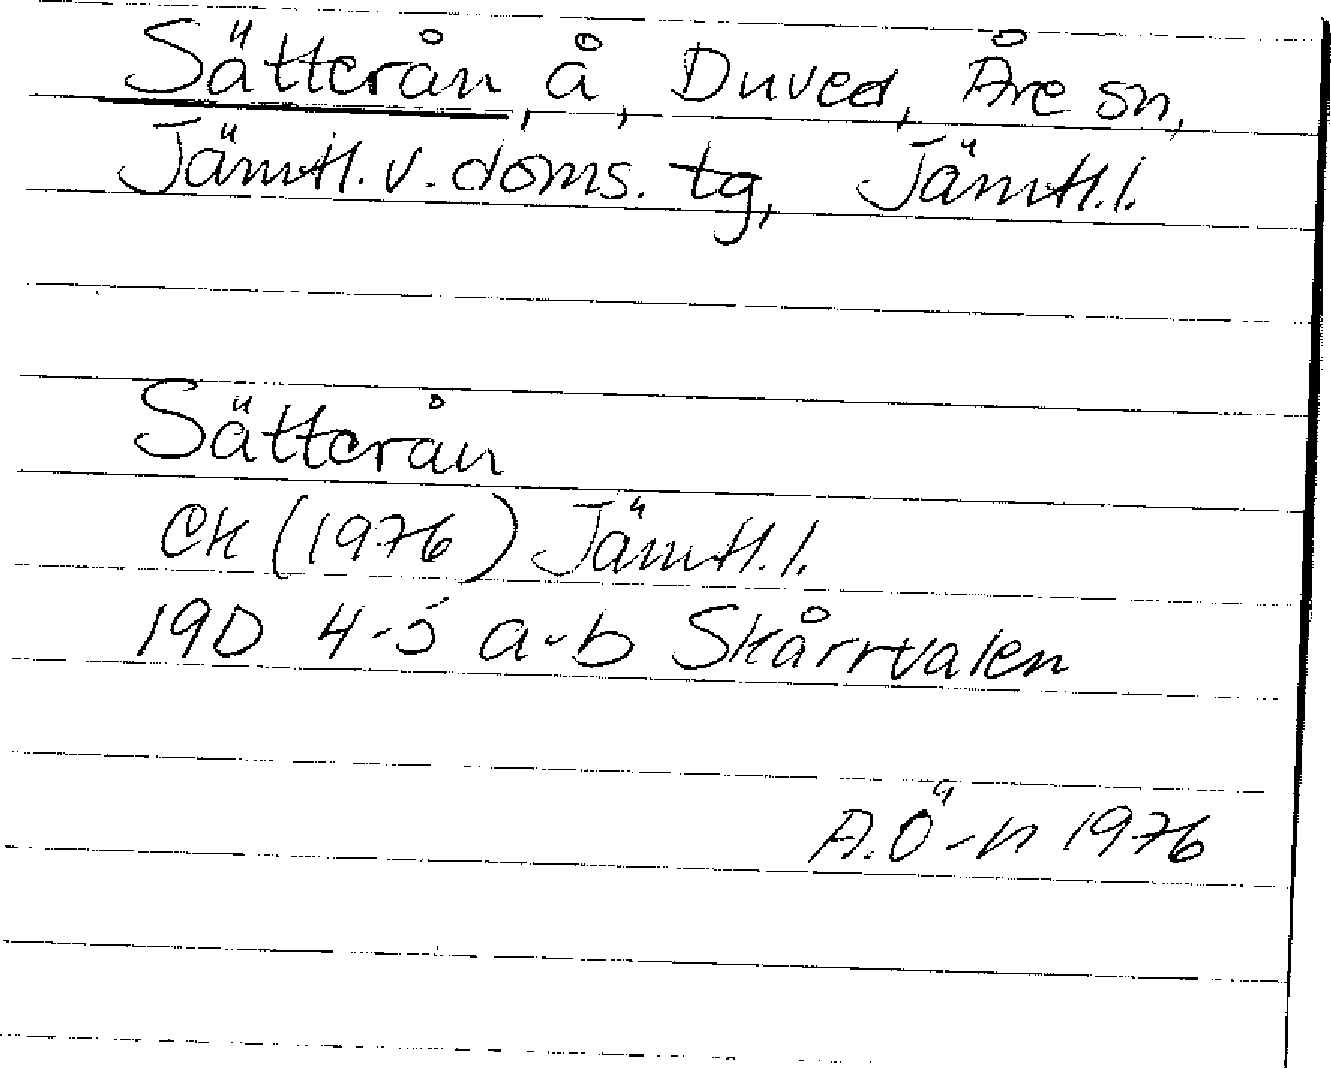 Sätterån, å, Duved, Åre sn,
Jämtl.v.doms.tg, Jämtl.l.
Sätterån
EK (1976) Jämtl.l.
19D 4-5 a-b Skårrvalen
A.Ö-n 1976